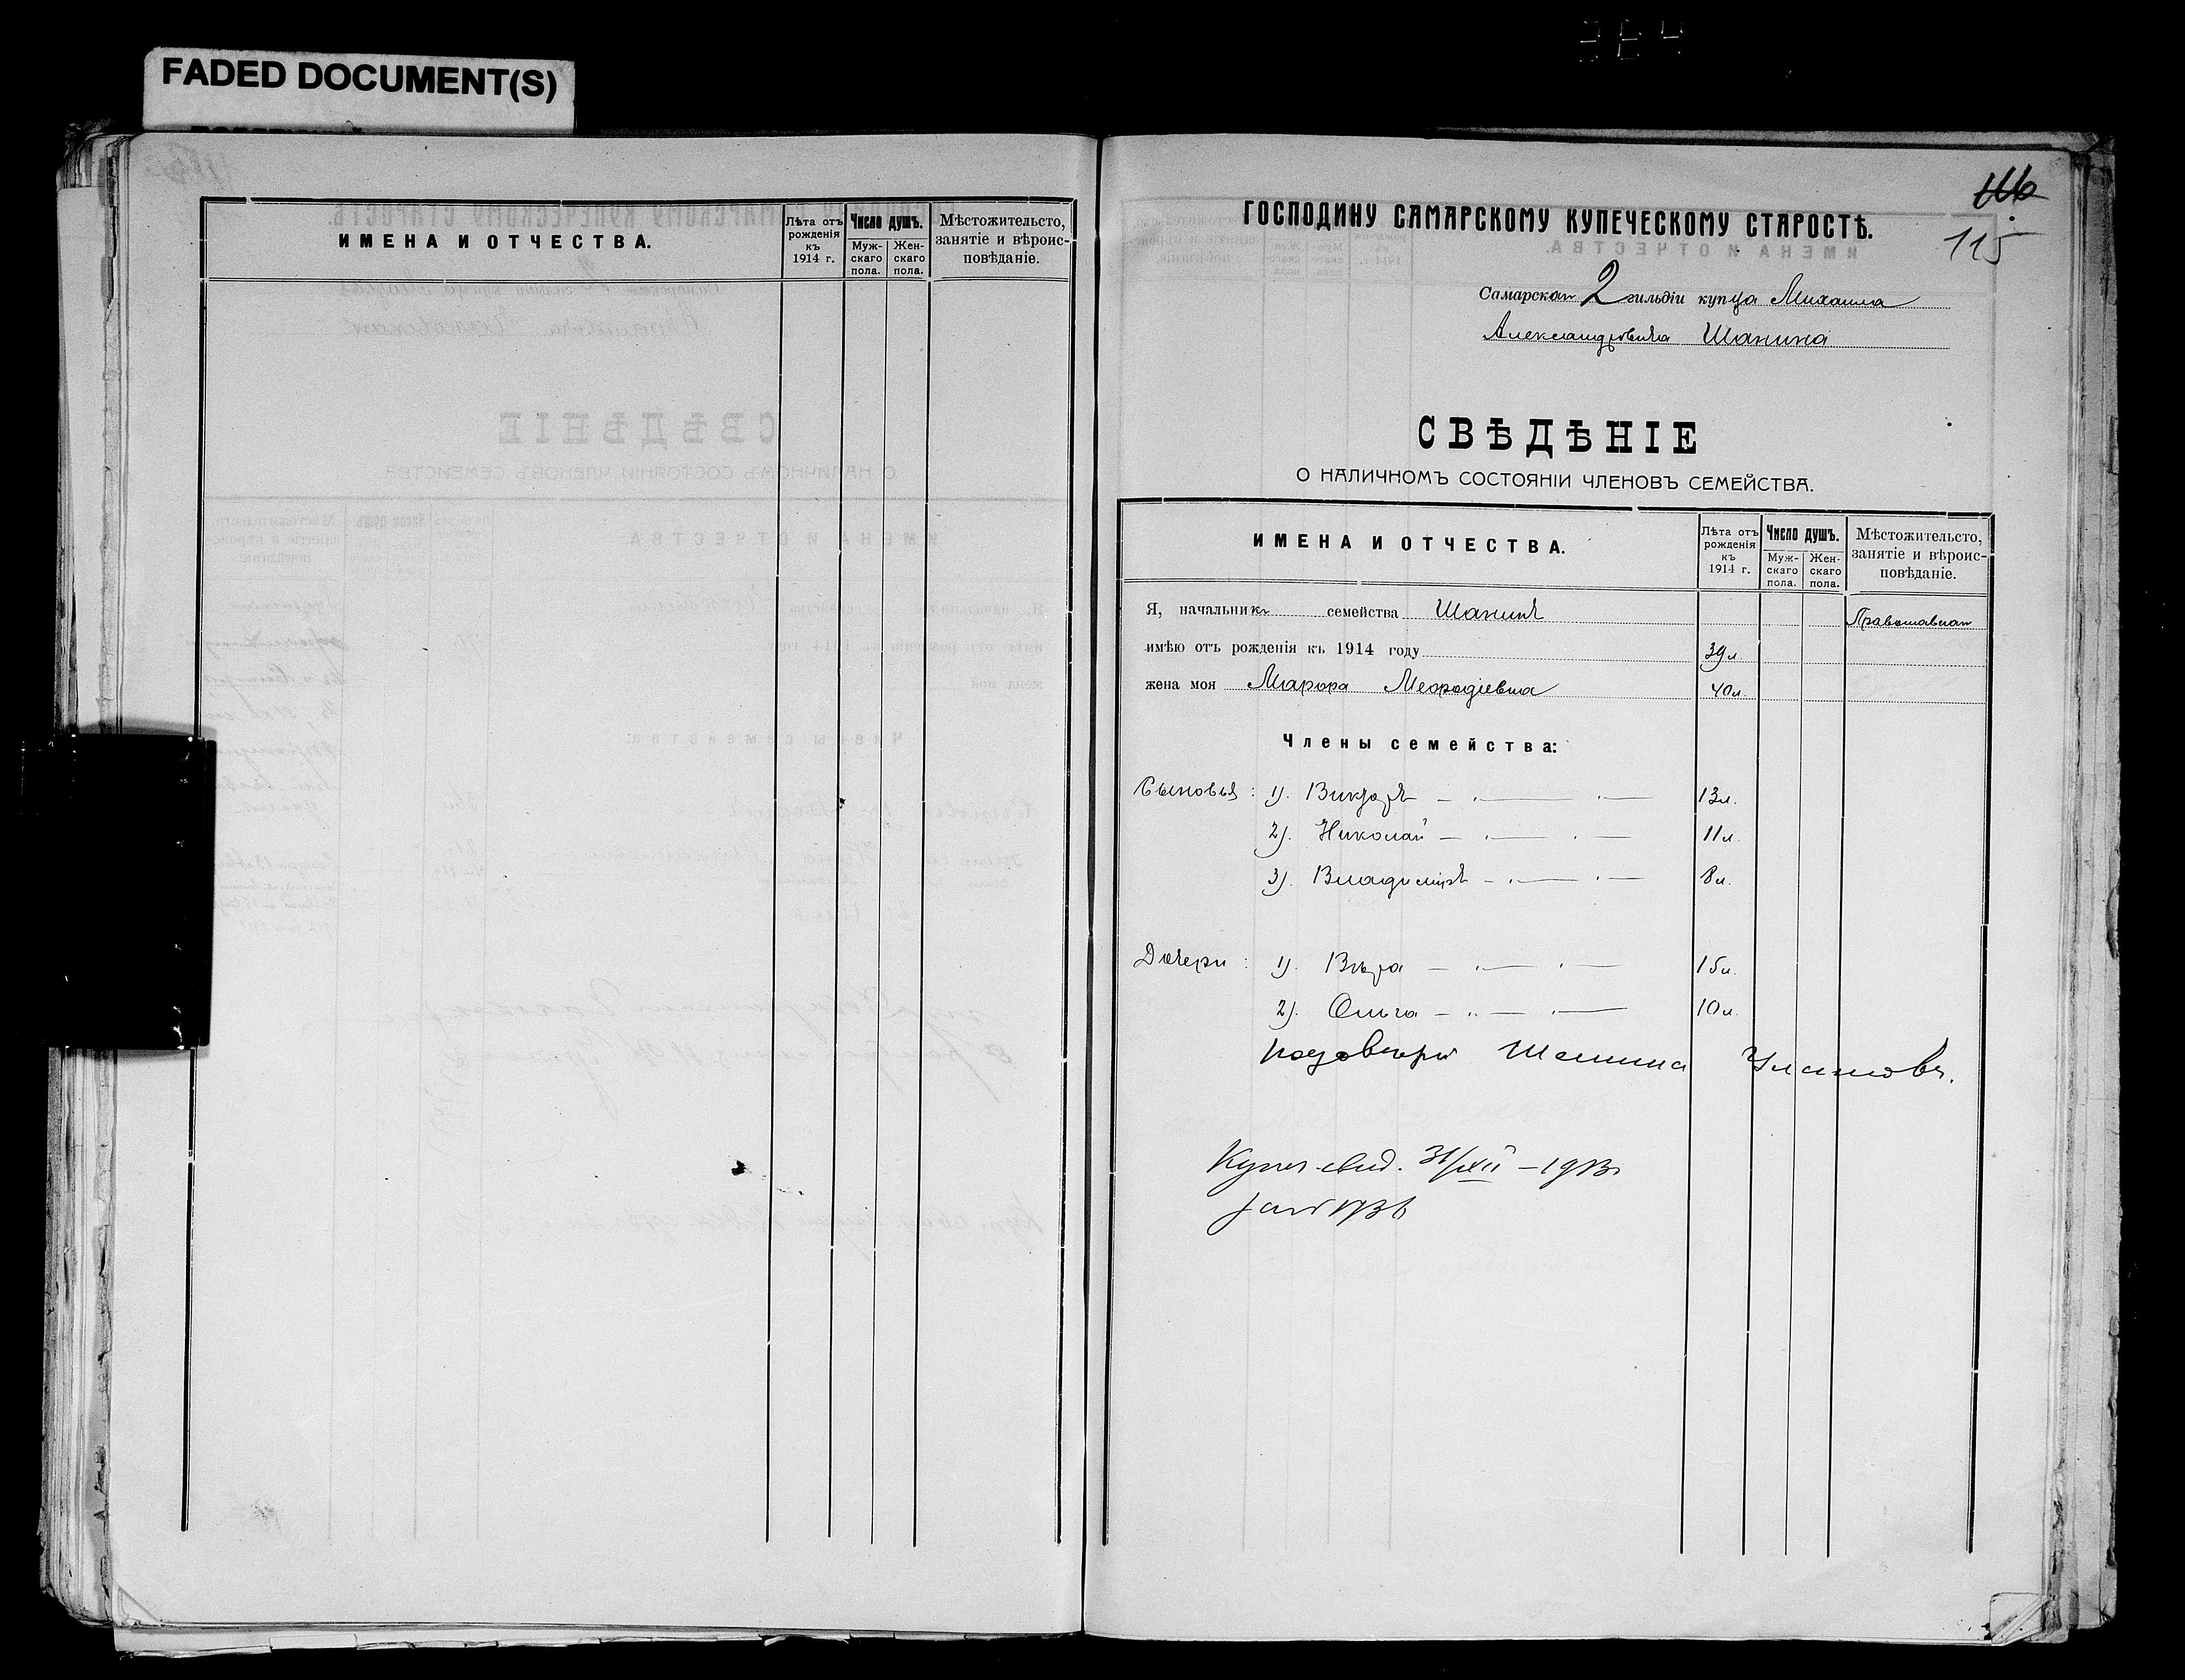 FADED DOCUMENT(S)
ИМЕНА И ОТЧЕСТВА.
Лѣта отъ рожденія къ 1914 г.
Число душъ.
Мужскаго пола.
Женскаго пола.
Мѣстожительсто, занятіе и вѣроисповѣданіе.
116
115
ГОСПОДИНУ САМАРСКОМУ КУПЕЧЕСКОМУ СТАРОСТѢ.
Самарскаго 2 гильдіи купца Михаила
Александровича Шанина
СВѢДѢНІЕ
О НАЛИЧНОМЪ СОСТОЯНІИ ЧЛЕНОВЪ СЕМЕЙСТВА.
ИМЕНА И ОТЧЕСТВА.
Лѣта отъ рожденія къ 1914 г.
Число душъ.
Мужскаго пола.
Женскаго пола.
Мѣстожительсто, занятіе и вѣроисповѣданіе.
Я, начальникъ семейства Шанинъ Православная
имѣю отъ рожденія къ 1914 году 39 л
жена моя Марѳа Меѳодіевна 40 л.
Члены семейства:
Сыновья: 1). Викторъ 13 л.
2). Николай 11 л.
3). Владиміръ 8 л.
Дочери: 1). Вѣра 15 л.
2). Ольга 10 л.
Шанина
Купеч свид. 31/XII – 1913